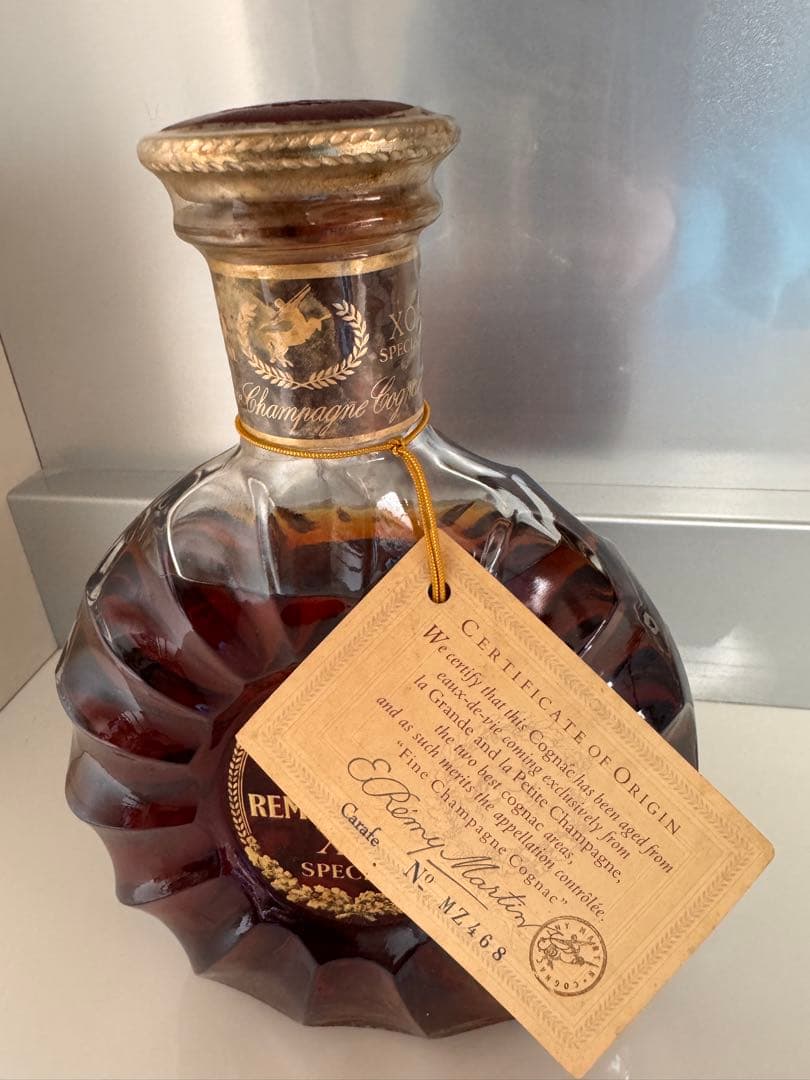 XO
SPECIAL
Champagne Cognac
REM
X
SPEC
CERTIFICATE OF ORIGIN
We certify that this Cognac has been aged from
eaux-de-vie coming exclusively from
la Grande and la Petite Champagne,
the two best cognac areas,
and as such merits the appellation contrôlée.
"Fine Champagne Cognac"
E Rémy Martin
Carafe No MZ468
RÉMY MARTIN • COGNAC